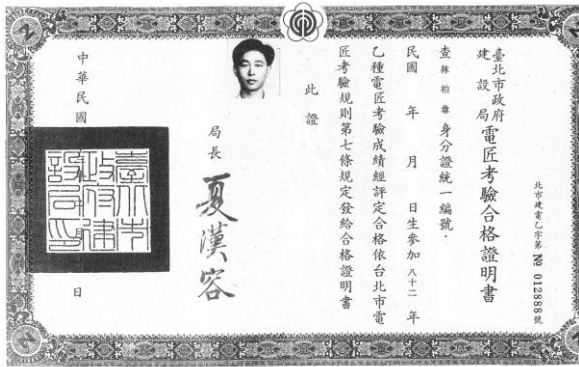 北市建電乙字第 № 012888 號
臺北市政府建設局電匠考驗合格證明書
查林柏韋身分證統一編號．
民國 年 月 日生參加八十二年
乙種電匠考驗成績經評定合格依台北市電
匠考驗規則第七條規定發給合格證明書
此證
局長 夏漢容
中華民國 日
臺北市政府建設局印